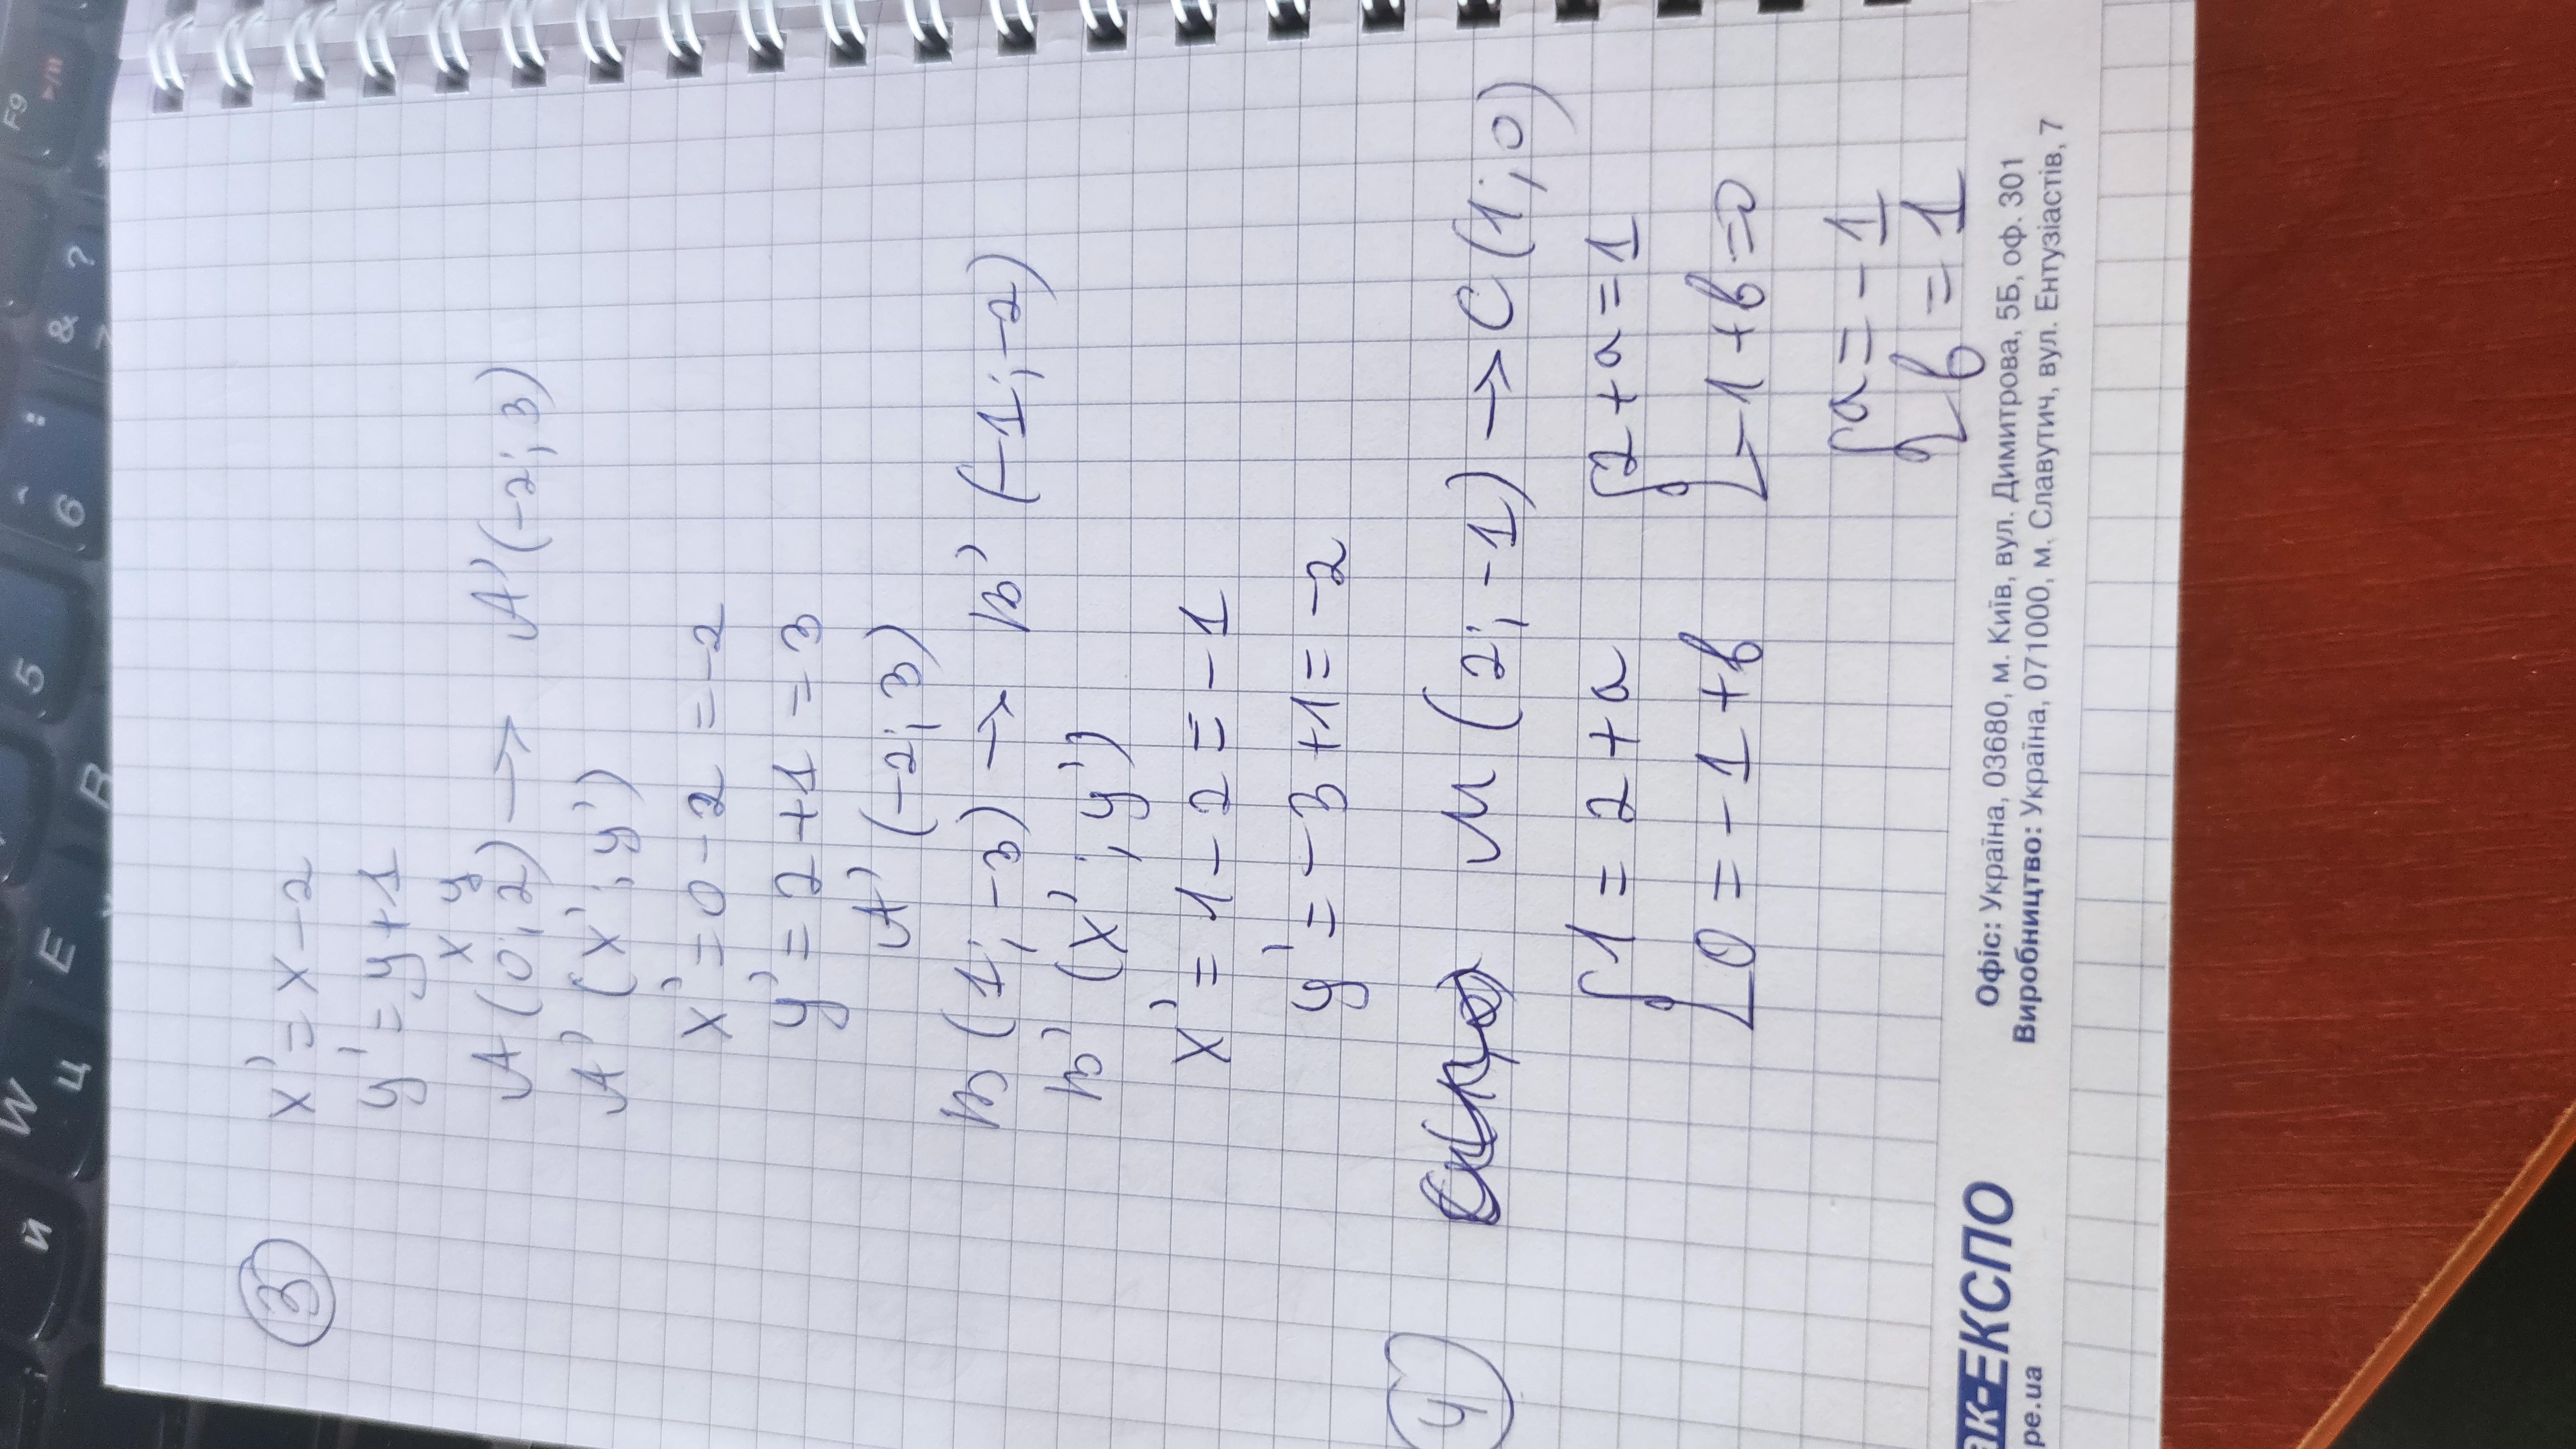 ③
x' = x - 2
y' = y + 1
x y
A (0; 2) → A' (-2; 3)
A' (x'; y')
x' = 0 - 2 = -2
y' = 2 + 1 = 3
A' (-2; 3)
B (1; -3) → B' (-1; -2)
B' (x'; y')
x' = 1 - 2 = -1
y' = -3 + 1 = -2
④ M (2; -1) → C (1; 0)
{ 1 = 2 + a { 2 + a = 1
{ 0 = -1 + b { -1 + b = 0
{ a = -1
{ b = 1
ак-ЕКСПО
pe.ua
Офіс: Україна, 03680, м. Київ, вул. Димитрова, 5Б, оф. 301
Виробництво: Україна, 071000, м. Славутич, вул. Ентузіастів, 7
F9
&
7
?
6
:
5
B
E
W
Ц
Й